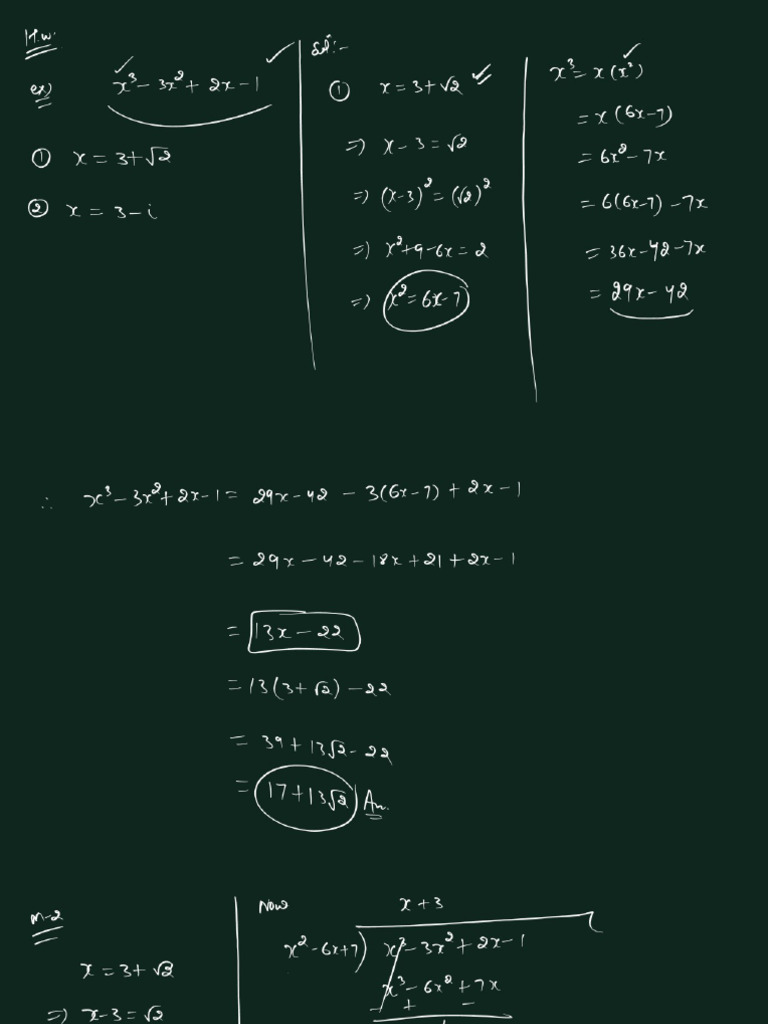 H.w.
ex) x³ - 3x² + 2x - 1
① x = 3 + √2
② x = 3 - i
Sol:-
① x = 3 + √2
=) x - 3 = √2
=) (x-3)² = (√2)²
=) x² + 9 - 6x = 2
=) x² = 6x - 7
x³ = x (x²)
= x (6x - 7)
= 6x² - 7x
= 6(6x - 7) - 7x
= 36x - 42 - 7x
= 29x - 42
∴ x³ - 3x² + 2x - 1 = 29x - 42 - 3(6x - 7) + 2x - 1
= 29x - 42 - 18x + 21 + 2x - 1
= 13x - 22
= 13(3 + √2) - 22
= 39 + 13√2 - 22
= 17 + 13√2 An.
M-2
x = 3 + √2
=) x - 3 = √2
Now
x + 3
x² - 6x + 7) x³ - 3x² + 2x - 1
x³ - 6x² + 7x
- + -